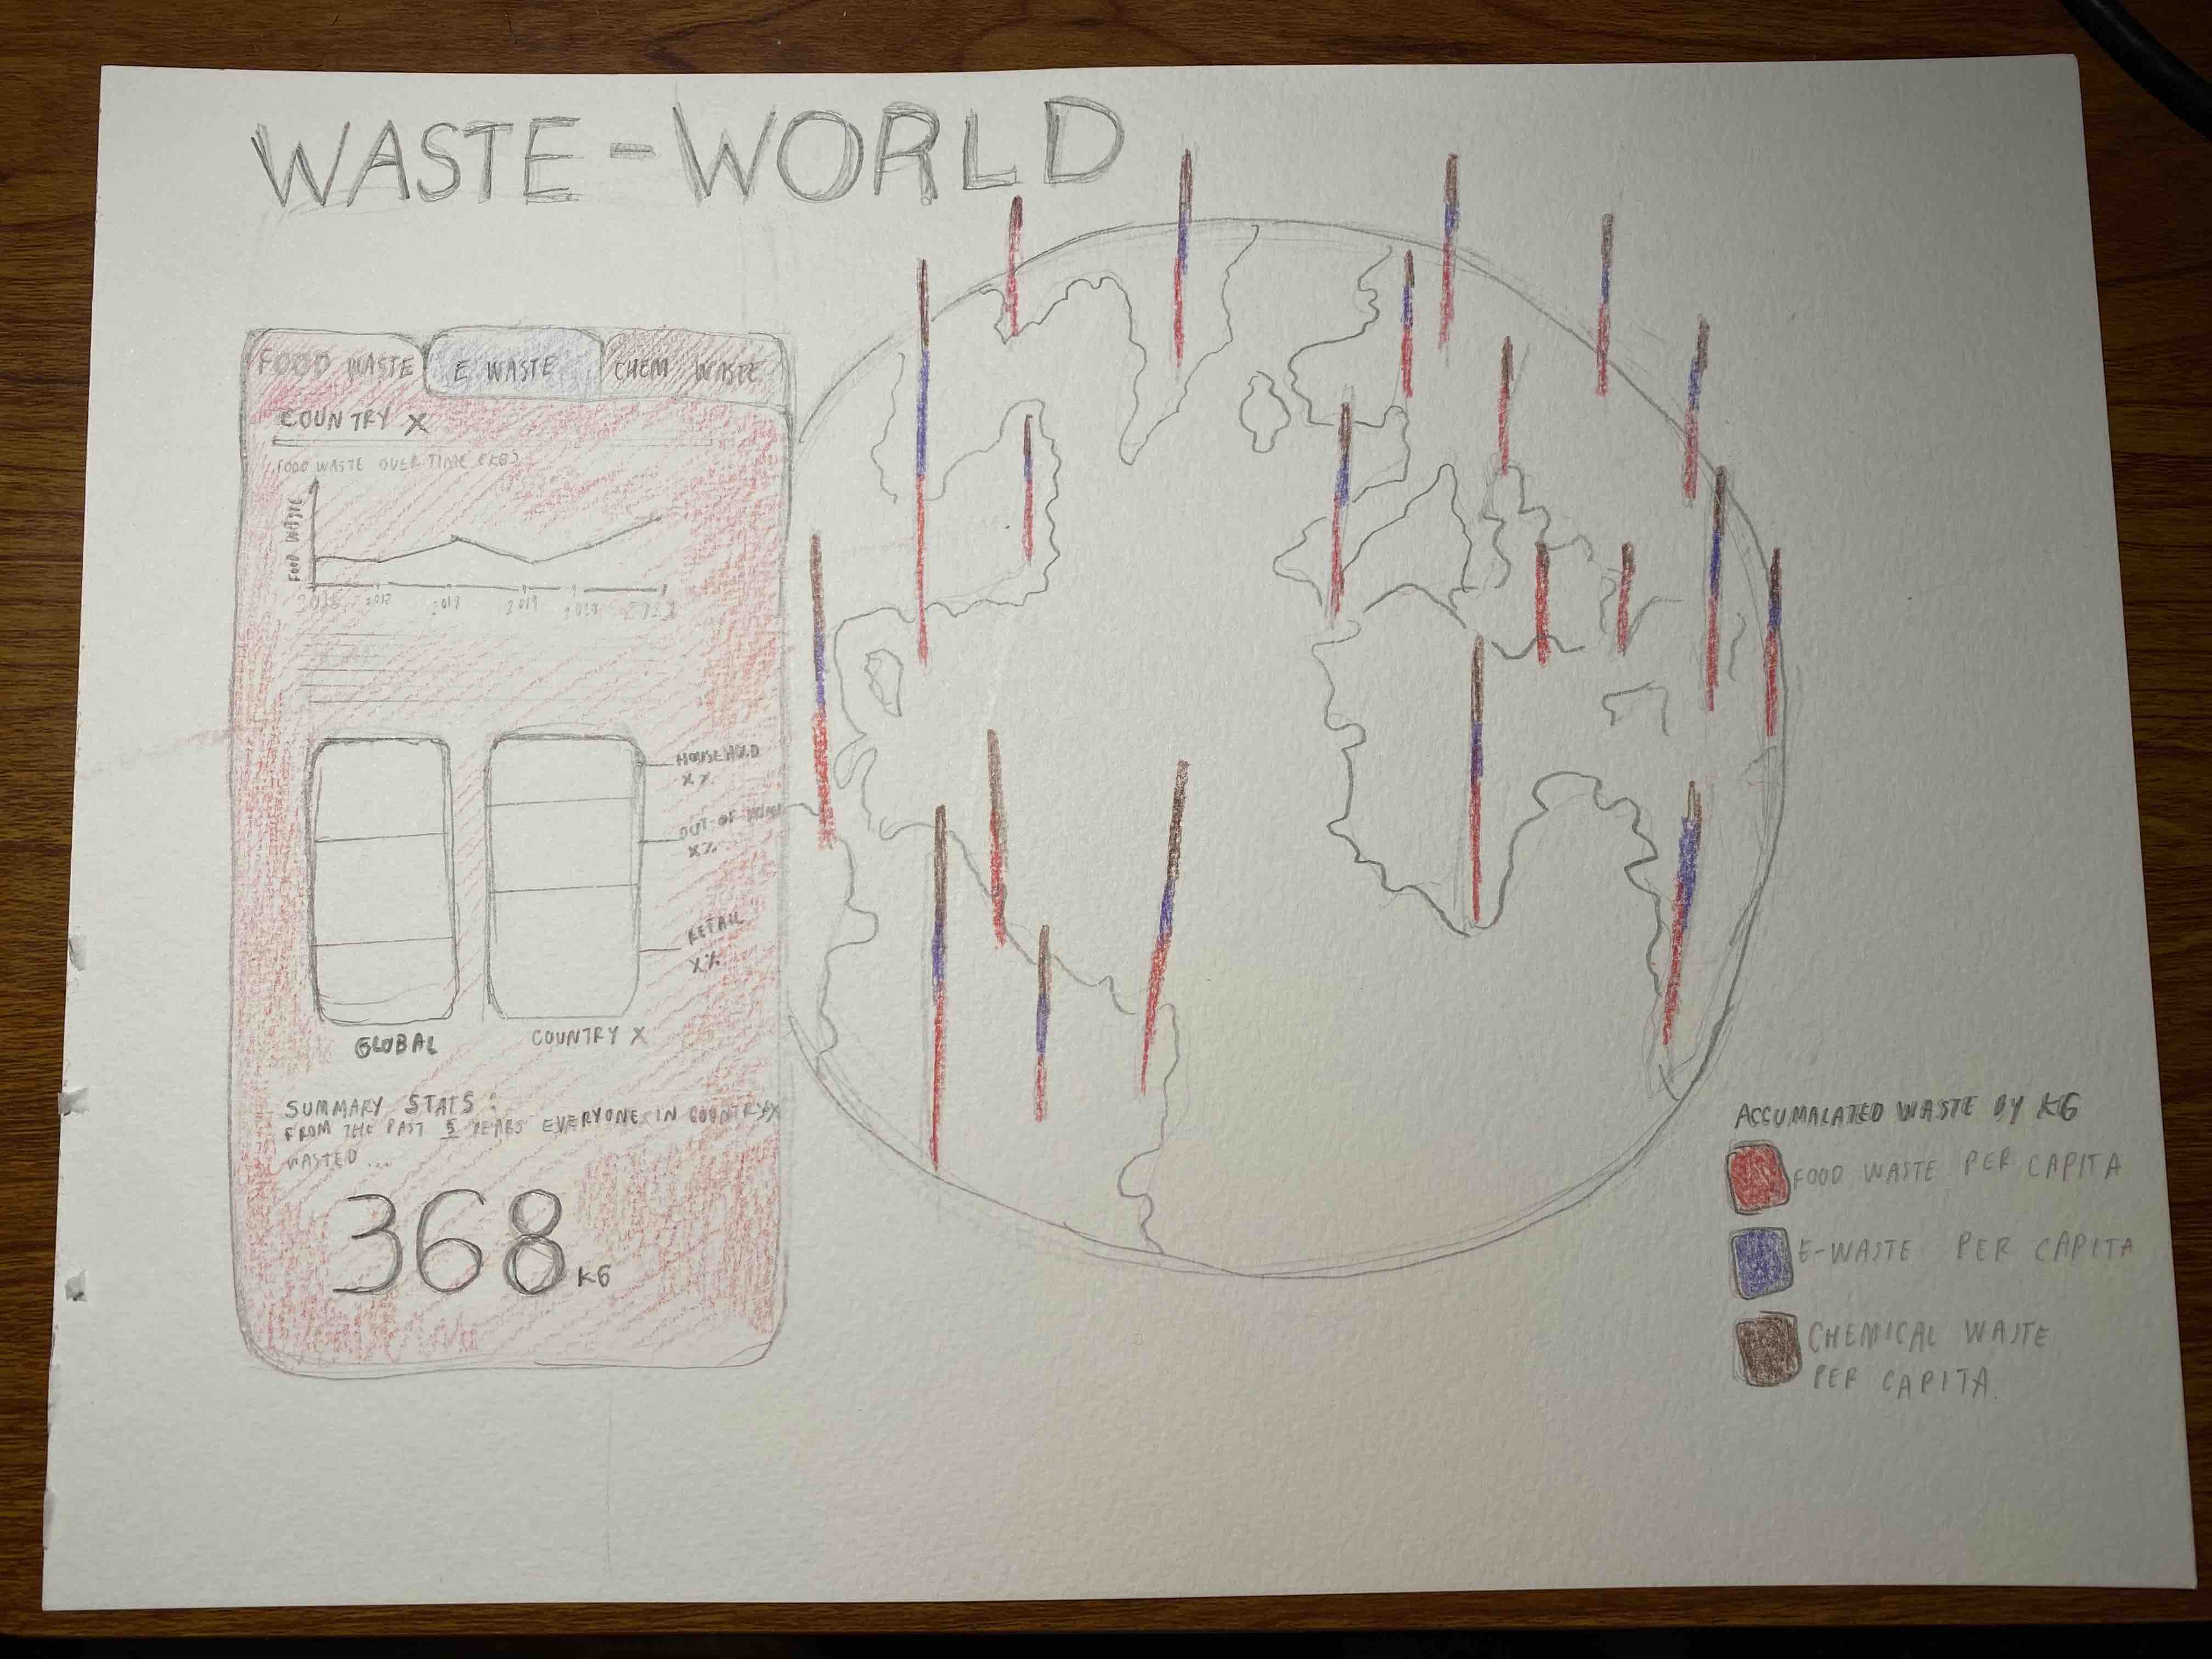 WASTE-WORLD
FOOD WASTE
E WASTE
CHEM WASTE
COUNTRY X
FOOD WASTE OVER TIME (KG)
FOOD WASTE
2019
HOUSEHOLD
X%
OUT-OF HOME
X%
RETAIL
X%
GLOBAL
COUNTRY X
SUMMARY STATS:
FROM THE PAST 5 YEARS EVERYONE IN COUNTRY X
WASTED...
368 KG
ACCUMALATED WASTE BY KG
FOOD WASTE PER CAPITA
E-WASTE PER CAPITA
CHEMICAL WASTE
PER CAPITA.